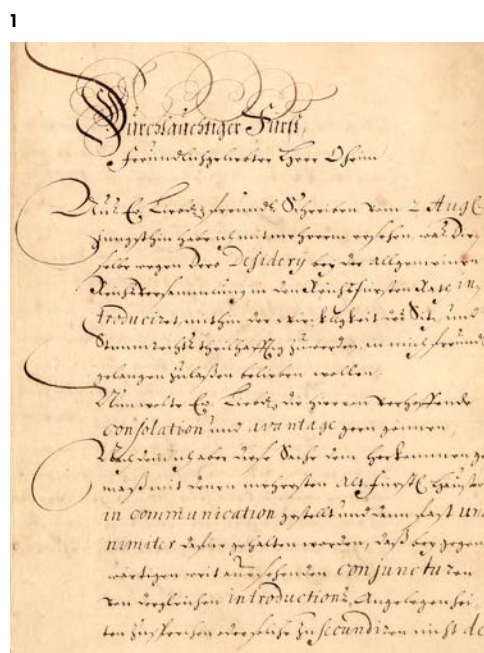 1
Durchlauchtiger Fürst,
freundlichgeliebter Herr Oheim
Auß Ew. Liebd. freundl. Schreiben vom 2 Aug
jüngsthin habe ich mit mehrerm ersehen, was
selbe wegen dero Desiderij bey der allgemeinen
Reichsversammlung in den Reichsfürsten Rate in
troduciret, mithin der würckligkeit des Sitz und
Stimmrechts theilhafftig zuwerden, an mich freund
gelangen zulaßen belieben wollen.
Nun wolte Ew. Liebd. die hiervon verhoffende
consolation und avantage gern gönnen,
Weil dennoch aber diese Sache dem herkommen ge
mäß mit denen mehresten Alt fürstl. häusern
in communication gestelt und dann fast una
nimiter dafür gehalten worden, daß bey gegen
wärtigen weit außsehenden conjuncturen
von dergleichen introductions Angelegenhei
ten zusprechen oder solche zu secundiren nicht de